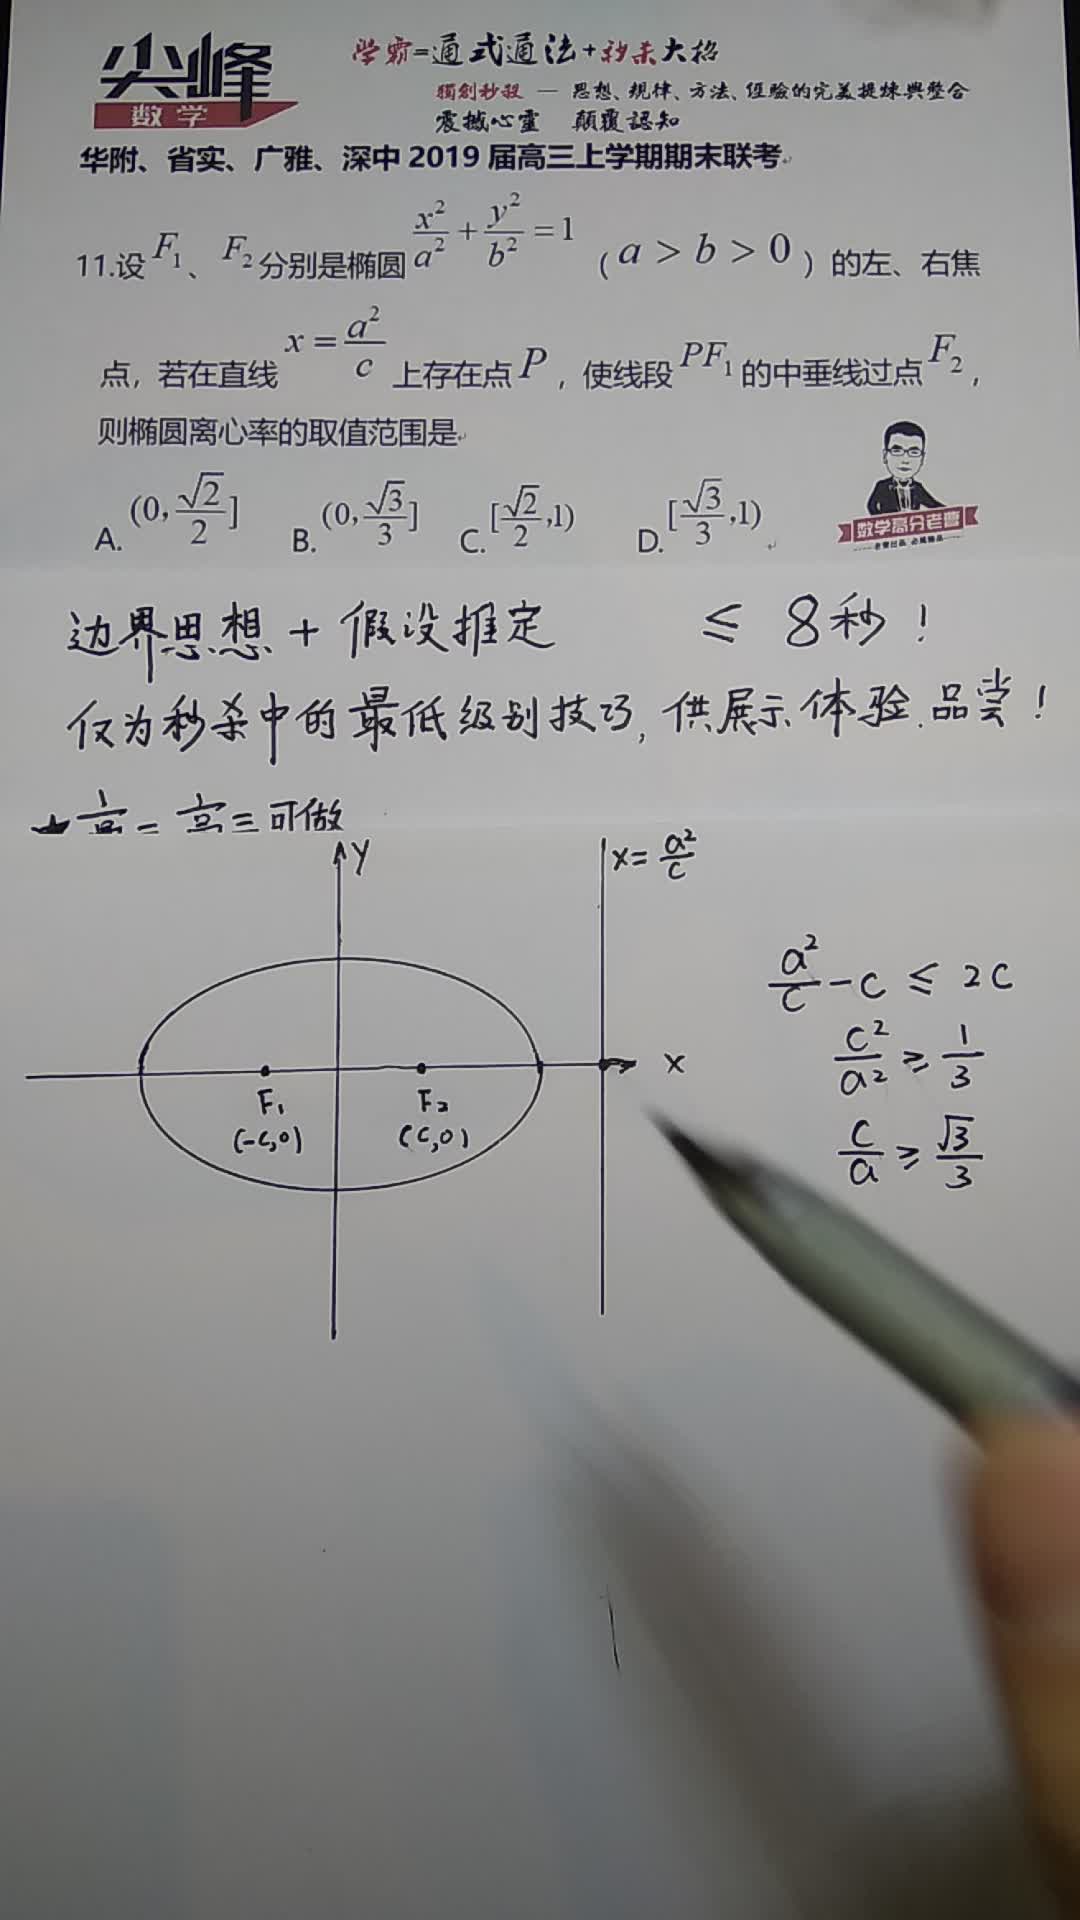 尖峰
数学
学霸=通式通法+秒杀大招
獨創秒殺 — 思想、规律、方法、经验的完美提煉與整合
震撼心靈 顛覆認知
华附、省实、广雅、深中 2019 届高三上学期期末联考
11.设 F₁、F₂ 分别是椭圆 x²/a² + y²/b² = 1 (a > b > 0) 的左、右焦
点，若在直线 x = a²/c 上存在点 P，使线段 PF₁ 的中垂线过点 F₂，
则椭圆离心率的取值范围是
A. (0, √2/2] B. (0, √3/3] C. [√2/2, 1) D. [√3/3, 1)
数学高分老曹
边界思想 + 假设推定 ≤ 8秒！
仅为秒杀中的最低级别技巧, 供展示体验.品尝！
可做
y
x = a²/c
a²/c - c ≤ 2c
c²/a² ≥ 1/3
x
F₁ F₂
(-c,0) (c,0)
c/a ≥ √3/3